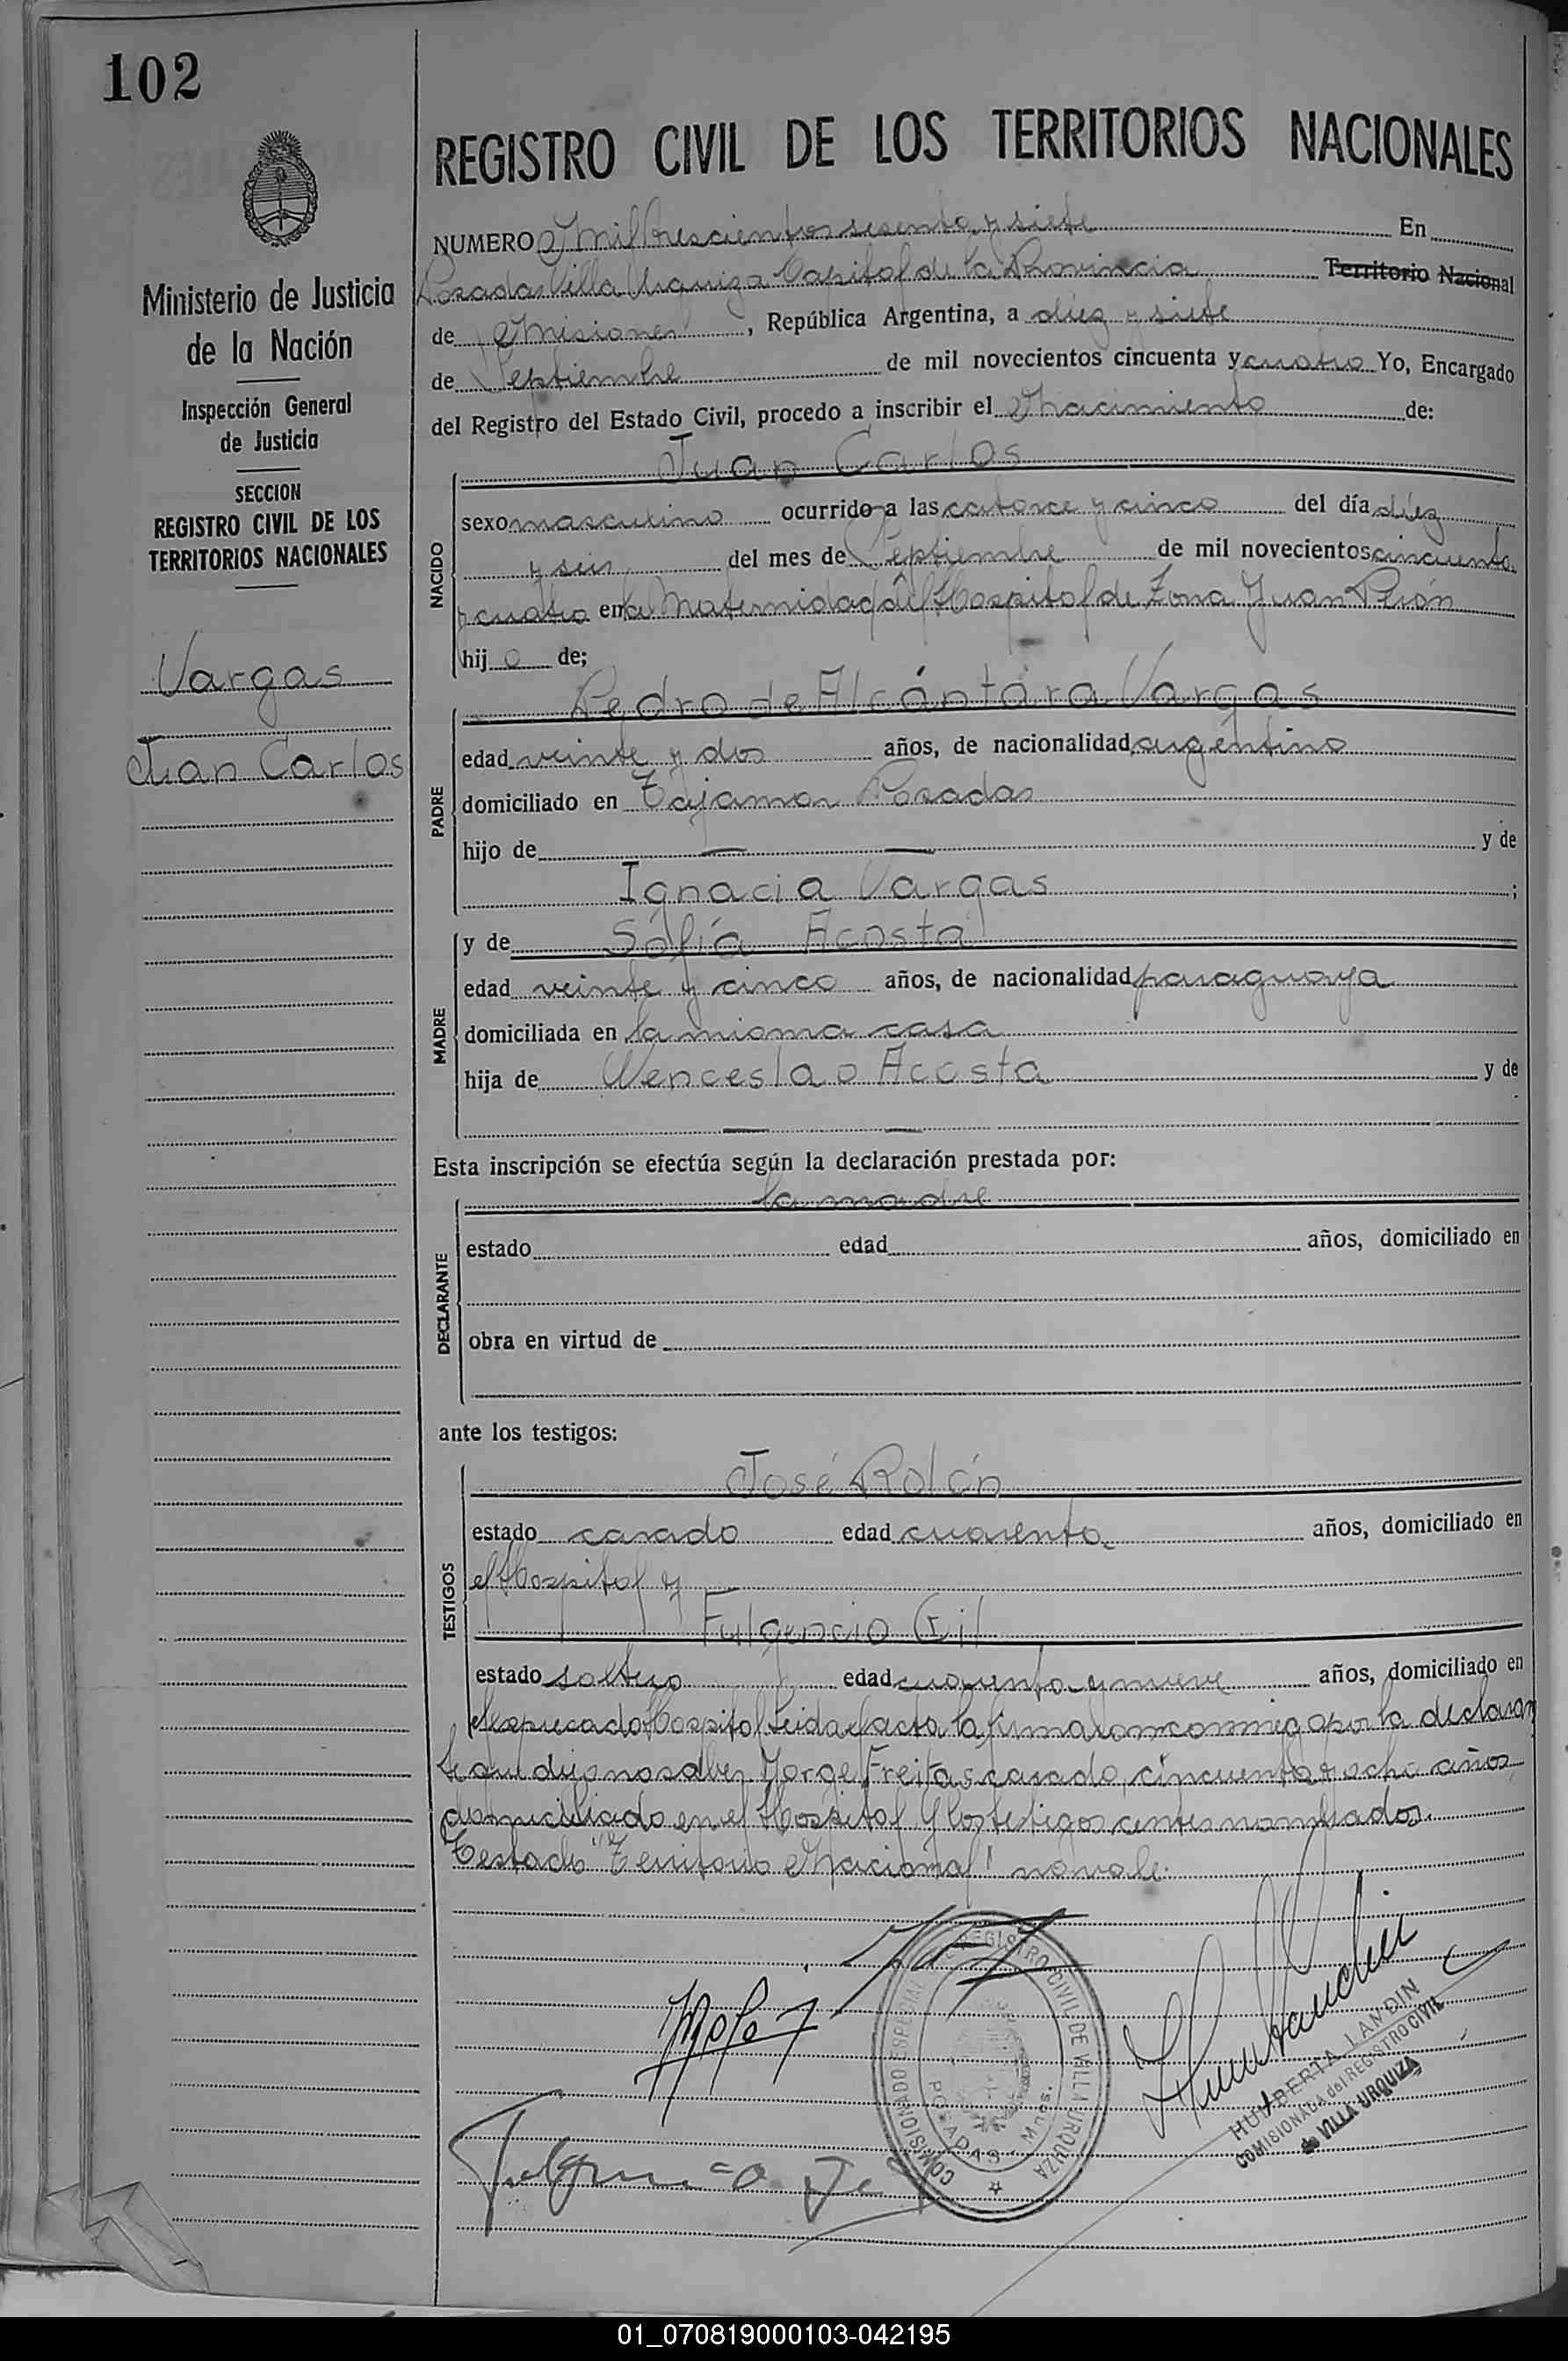 102
REGISTRO CIVIL DE LOS TERRITORIOS NACIONALES
Ministerio de Justicia
de la Nación
Inspección General
de Justicia
SECCION
REGISTRO CIVIL DE LOS
TERRITORIOS NACIONALES
Vargas
Juan Carlos
NUMERO Mil trescientos sesenta y siete En
Posadas Villa Urquiza Capital de la Provincia Territorio Nacional
de Misiones, República Argentina, a diez y siete
de Septiembre de mil novecientos cincuenta y cuatro Yo, Encargado
del Registro del Estado Civil, procedo a inscribir el Nacimiento de:
NACIDO
Juan Carlos
sexo masculino ocurrido a las catorce y cinco del día diez
y seis del mes de Septiembre de mil novecientos cincuenta
y cuatro en la Maternidad del Hospital de Zona Juan Perón
hijo de;
PADRE
Pedro de Alcántara Vargas
edad veinte y dos años, de nacionalidad argentino
domiciliado en Tajamar Posadas
hijo de — — y de
Ignacia Vargas ;
MADRE
y de Sofía Acosta
edad veinte y cinco años, de nacionalidad paraguaya
domiciliada en la misma casa
hija de Wenceslao Acosta y de
— —
Esta inscripción se efectúa según la declaración prestada por:
DECLARANTE
la madre
estado edad años, domiciliado en
obra en virtud de
ante los testigos:
TESTIGOS
José Rolón
estado casado edad cuarenta años, domiciliado en
el Hospital y
Fulgencio Gil
estado soltero edad cuarenta y nueve años, domiciliado en
el expresado Hospital Leida el acta la firmaron conmigo por la declaran
te que dijo no saber Jorge Freitas casado, cincuenta y ocho años
domiciliado en el Hospital y los testigos antes nombrados.
Testado "Territorio Nacional" no vale.
COMISIONADO ESPECIAL REGISTRO CIVIL DE VILLA URQUIZA
POSADAS - Mnes.
HUMBERTA LANDIN
COMISIONADA del REGISTRO CIVIL
de VILLA URQUIZA
01_070819000103-042195